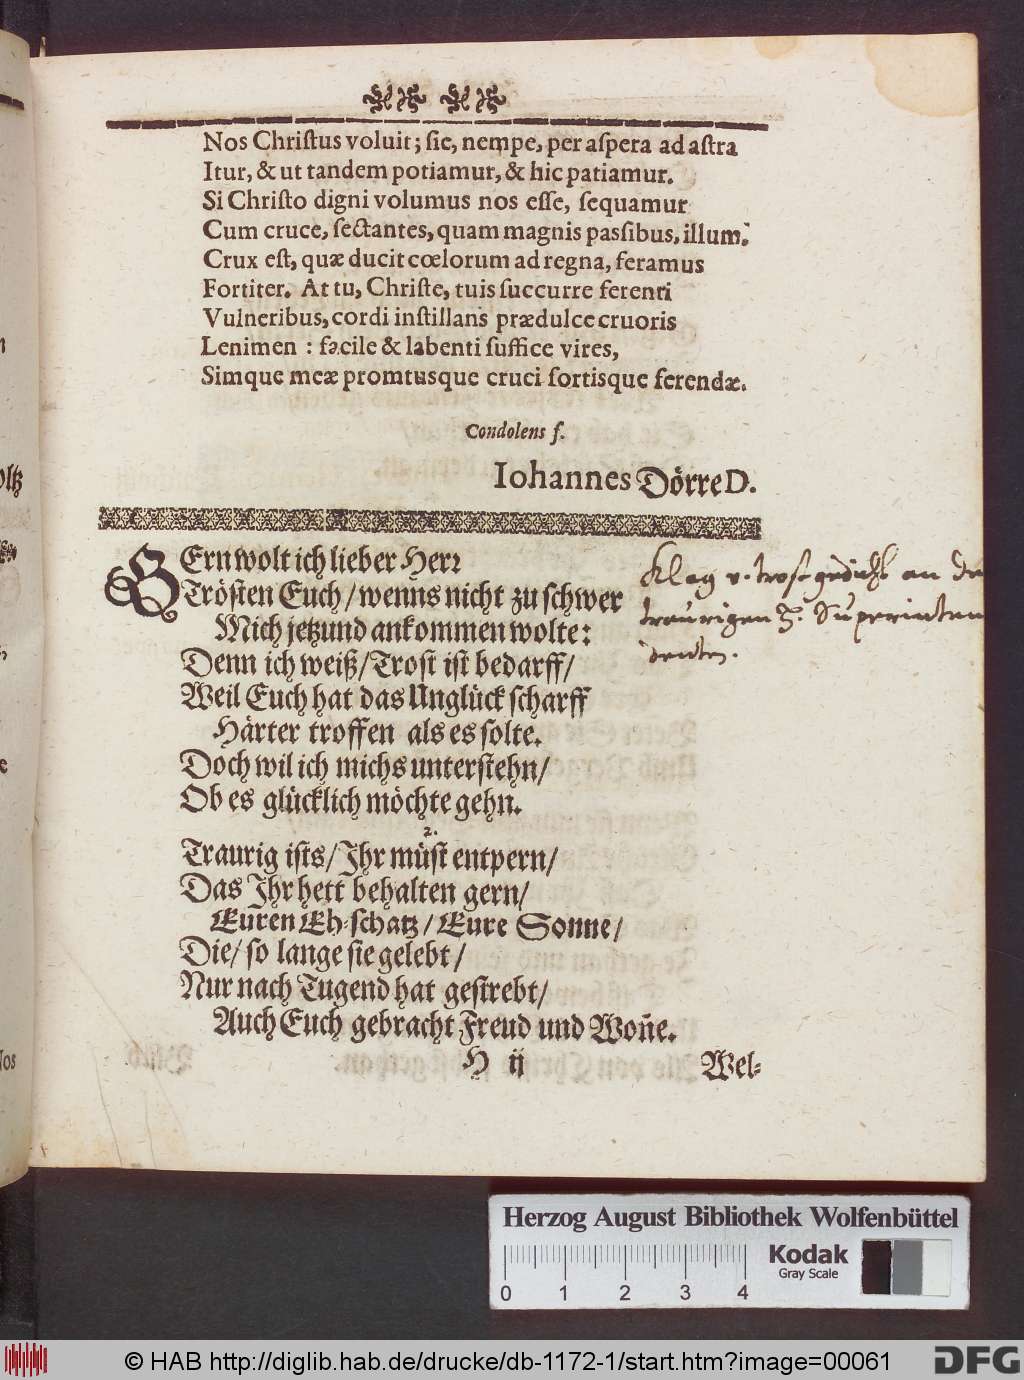 Nos Christus voluit; sic, nempe, per aspera ad astra
Itur, & ut tandem potiamur, & hic patiamur.
Si Christo digni volumus nos esse, sequamur
Cum cruce, sectantes, quam magnis passibus, illum.
Crux est, quæ ducit cœlorum ad regna, feramus
Fortiter. At tu, Christe, tuis succurre ferenti
Vulneribus, cordi instillans prædulce cruoris
Lenimen : facile & labenti suffice vires,
Simque meæ promtusque cruci fortisque ferendæ.
Condolens f.
Iohannes Dörre D.
GErn wolt ich lieber Herr
Trösten Euch / wenns nicht zu schwer
Mich jetzund ankommen wolte:
Denn ich weiß / Trost ist bedarff /
Weil Euch hat das Unglück scharff
Härter troffen als es solte.
Doch wil ich michs unterstehn /
Ob es glücklich möchte gehn.
2.
Traurig ists / Ihr müst entpern /
Das Ihr hett behalten gern /
Euren Eh-schatz / Eure Sonne /
Die / so lange sie gelebt /
Nur nach Tugend hat gestrebt /
Auch Euch gebracht Freud und Woñe.
H ij
Wel-
Klag v. trost gedicht an den
traurigen H. Superinten
denten.
Herzog August Bibliothek Wolfenbüttel
Kodak
Gray Scale
0 1 2 3 4
© HAB http://diglib.hab.de/drucke/db-1172-1/start.htm?image=00061
DFG